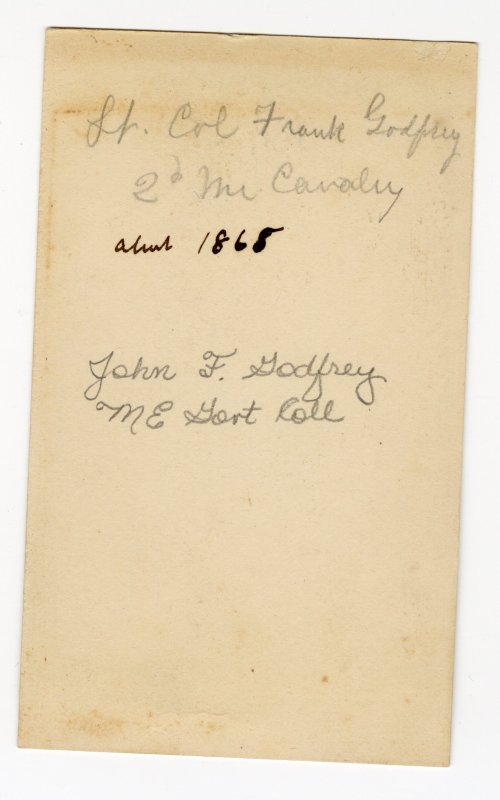 Lt. Col Frank Godfrey
2d Me Cavalry
about 1865
John F. Godfrey
ME Gort Coll